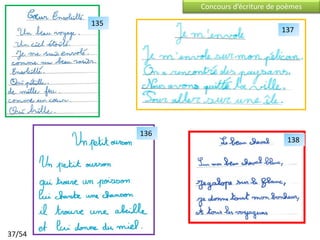 Concours d'écriture de poèmes
135
Cœur Ensoleillé
Un beau voyage.
Un ciel étoilé
Je me suis envolé
comme un beau soleil
Ensoleillé.
Qui pétille
de mille feu
comme un cœur
Qui brille.
137
Je m'envole
Je m'envole sur mon pélican.
On a rencontré des paysans.
Nous avons quitté la ville.
Pour aller sur une île.
136
Un petit ourson
Un petit ourson
qui trouve un poisson
lui chante une chanson
il trouve une abeille
et lui donne du miel.
138
Le beau cheval
Sur mon beau cheval blanc,
Je galope sur le
je donne tout mon bonheur,
et tous les voyageurs
37/54